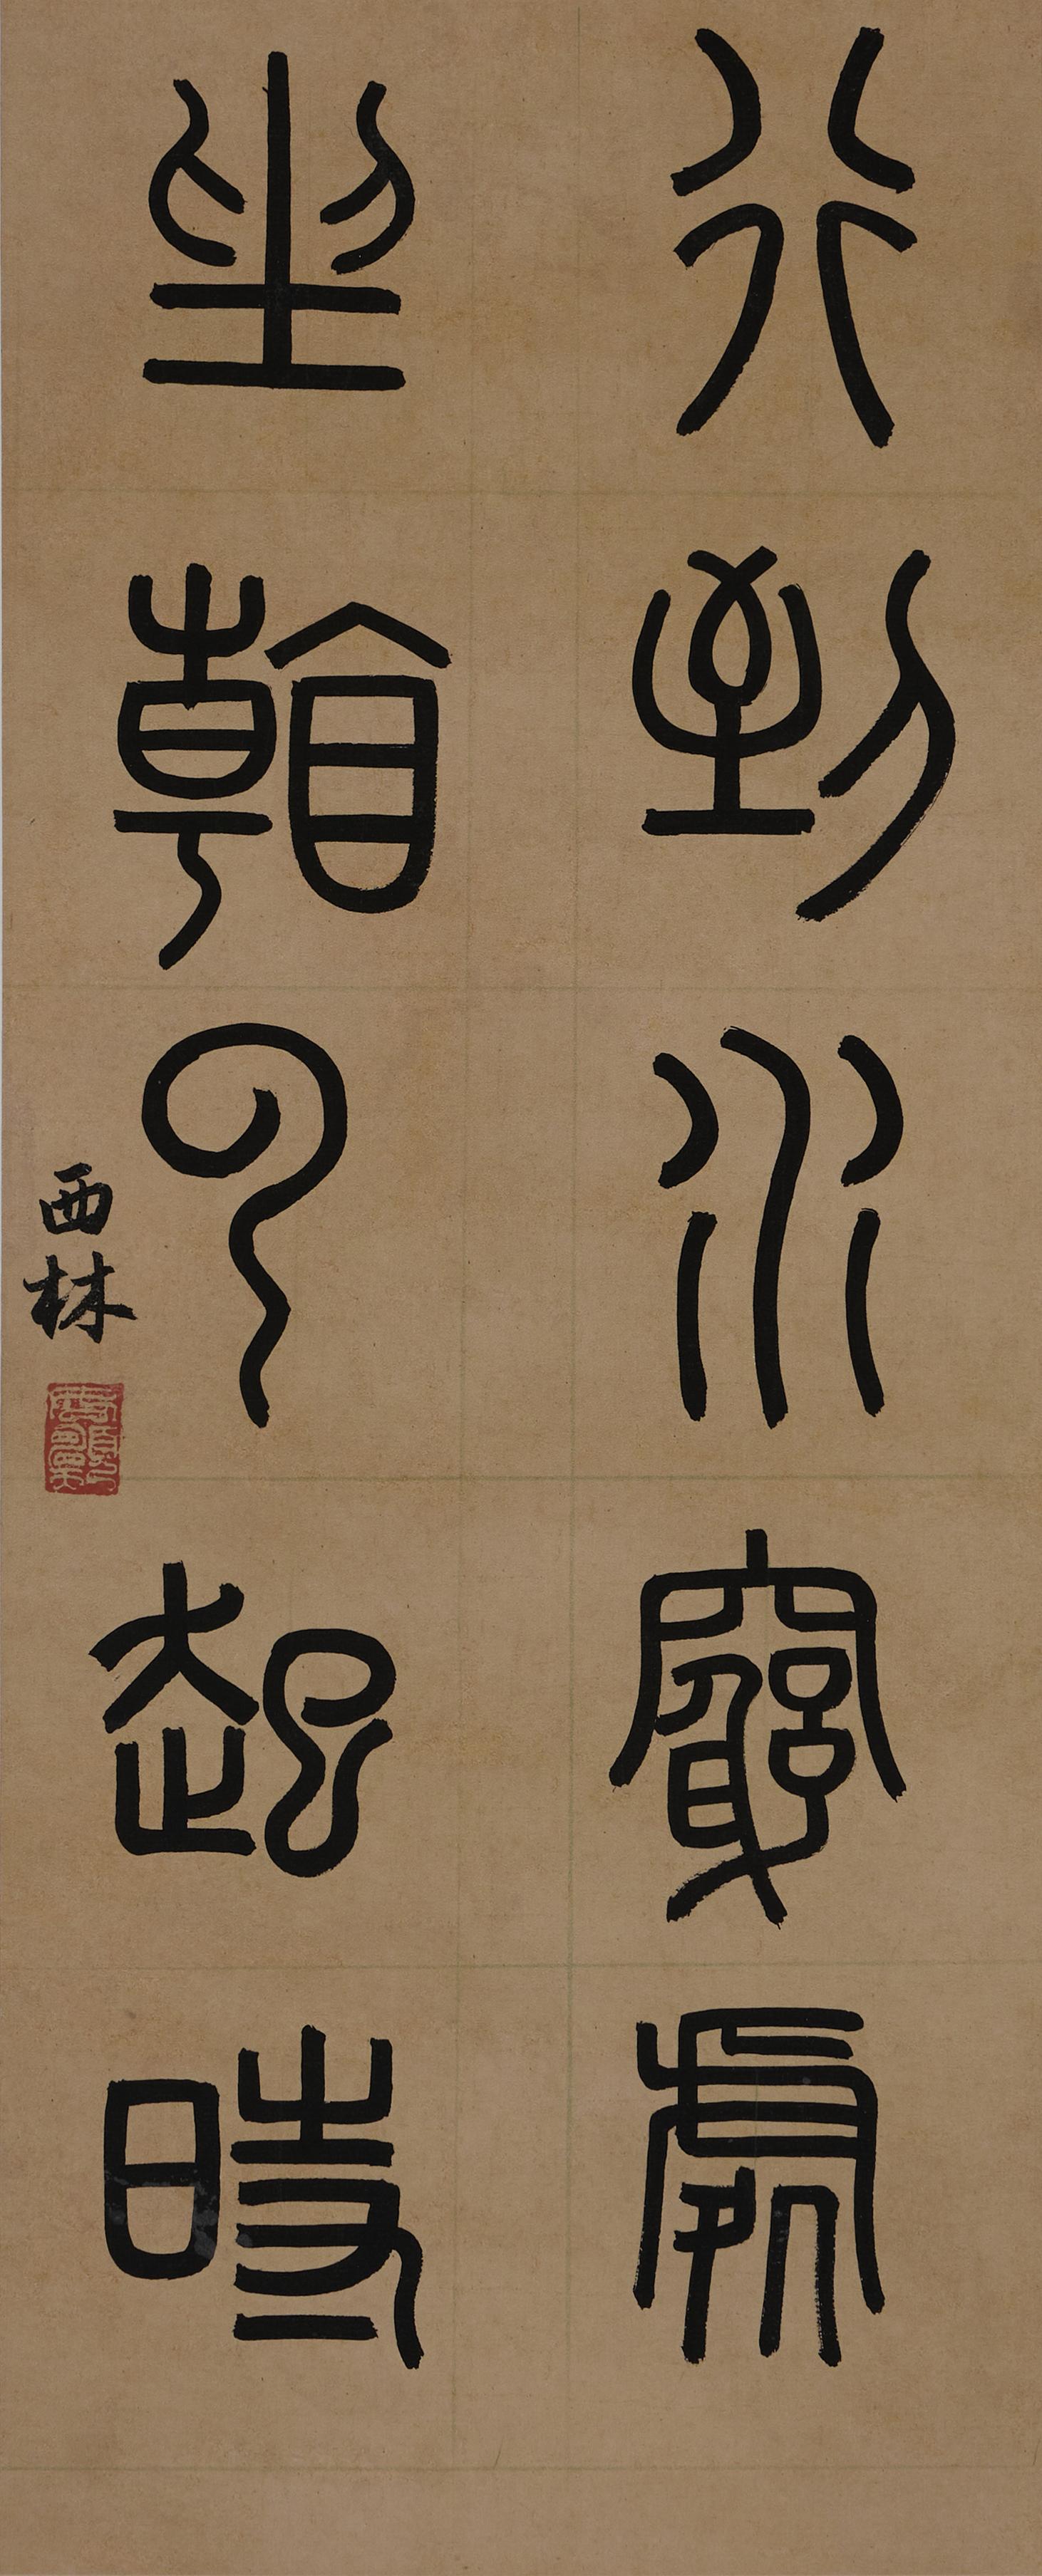 行到水窮處
坐看云起時
西林